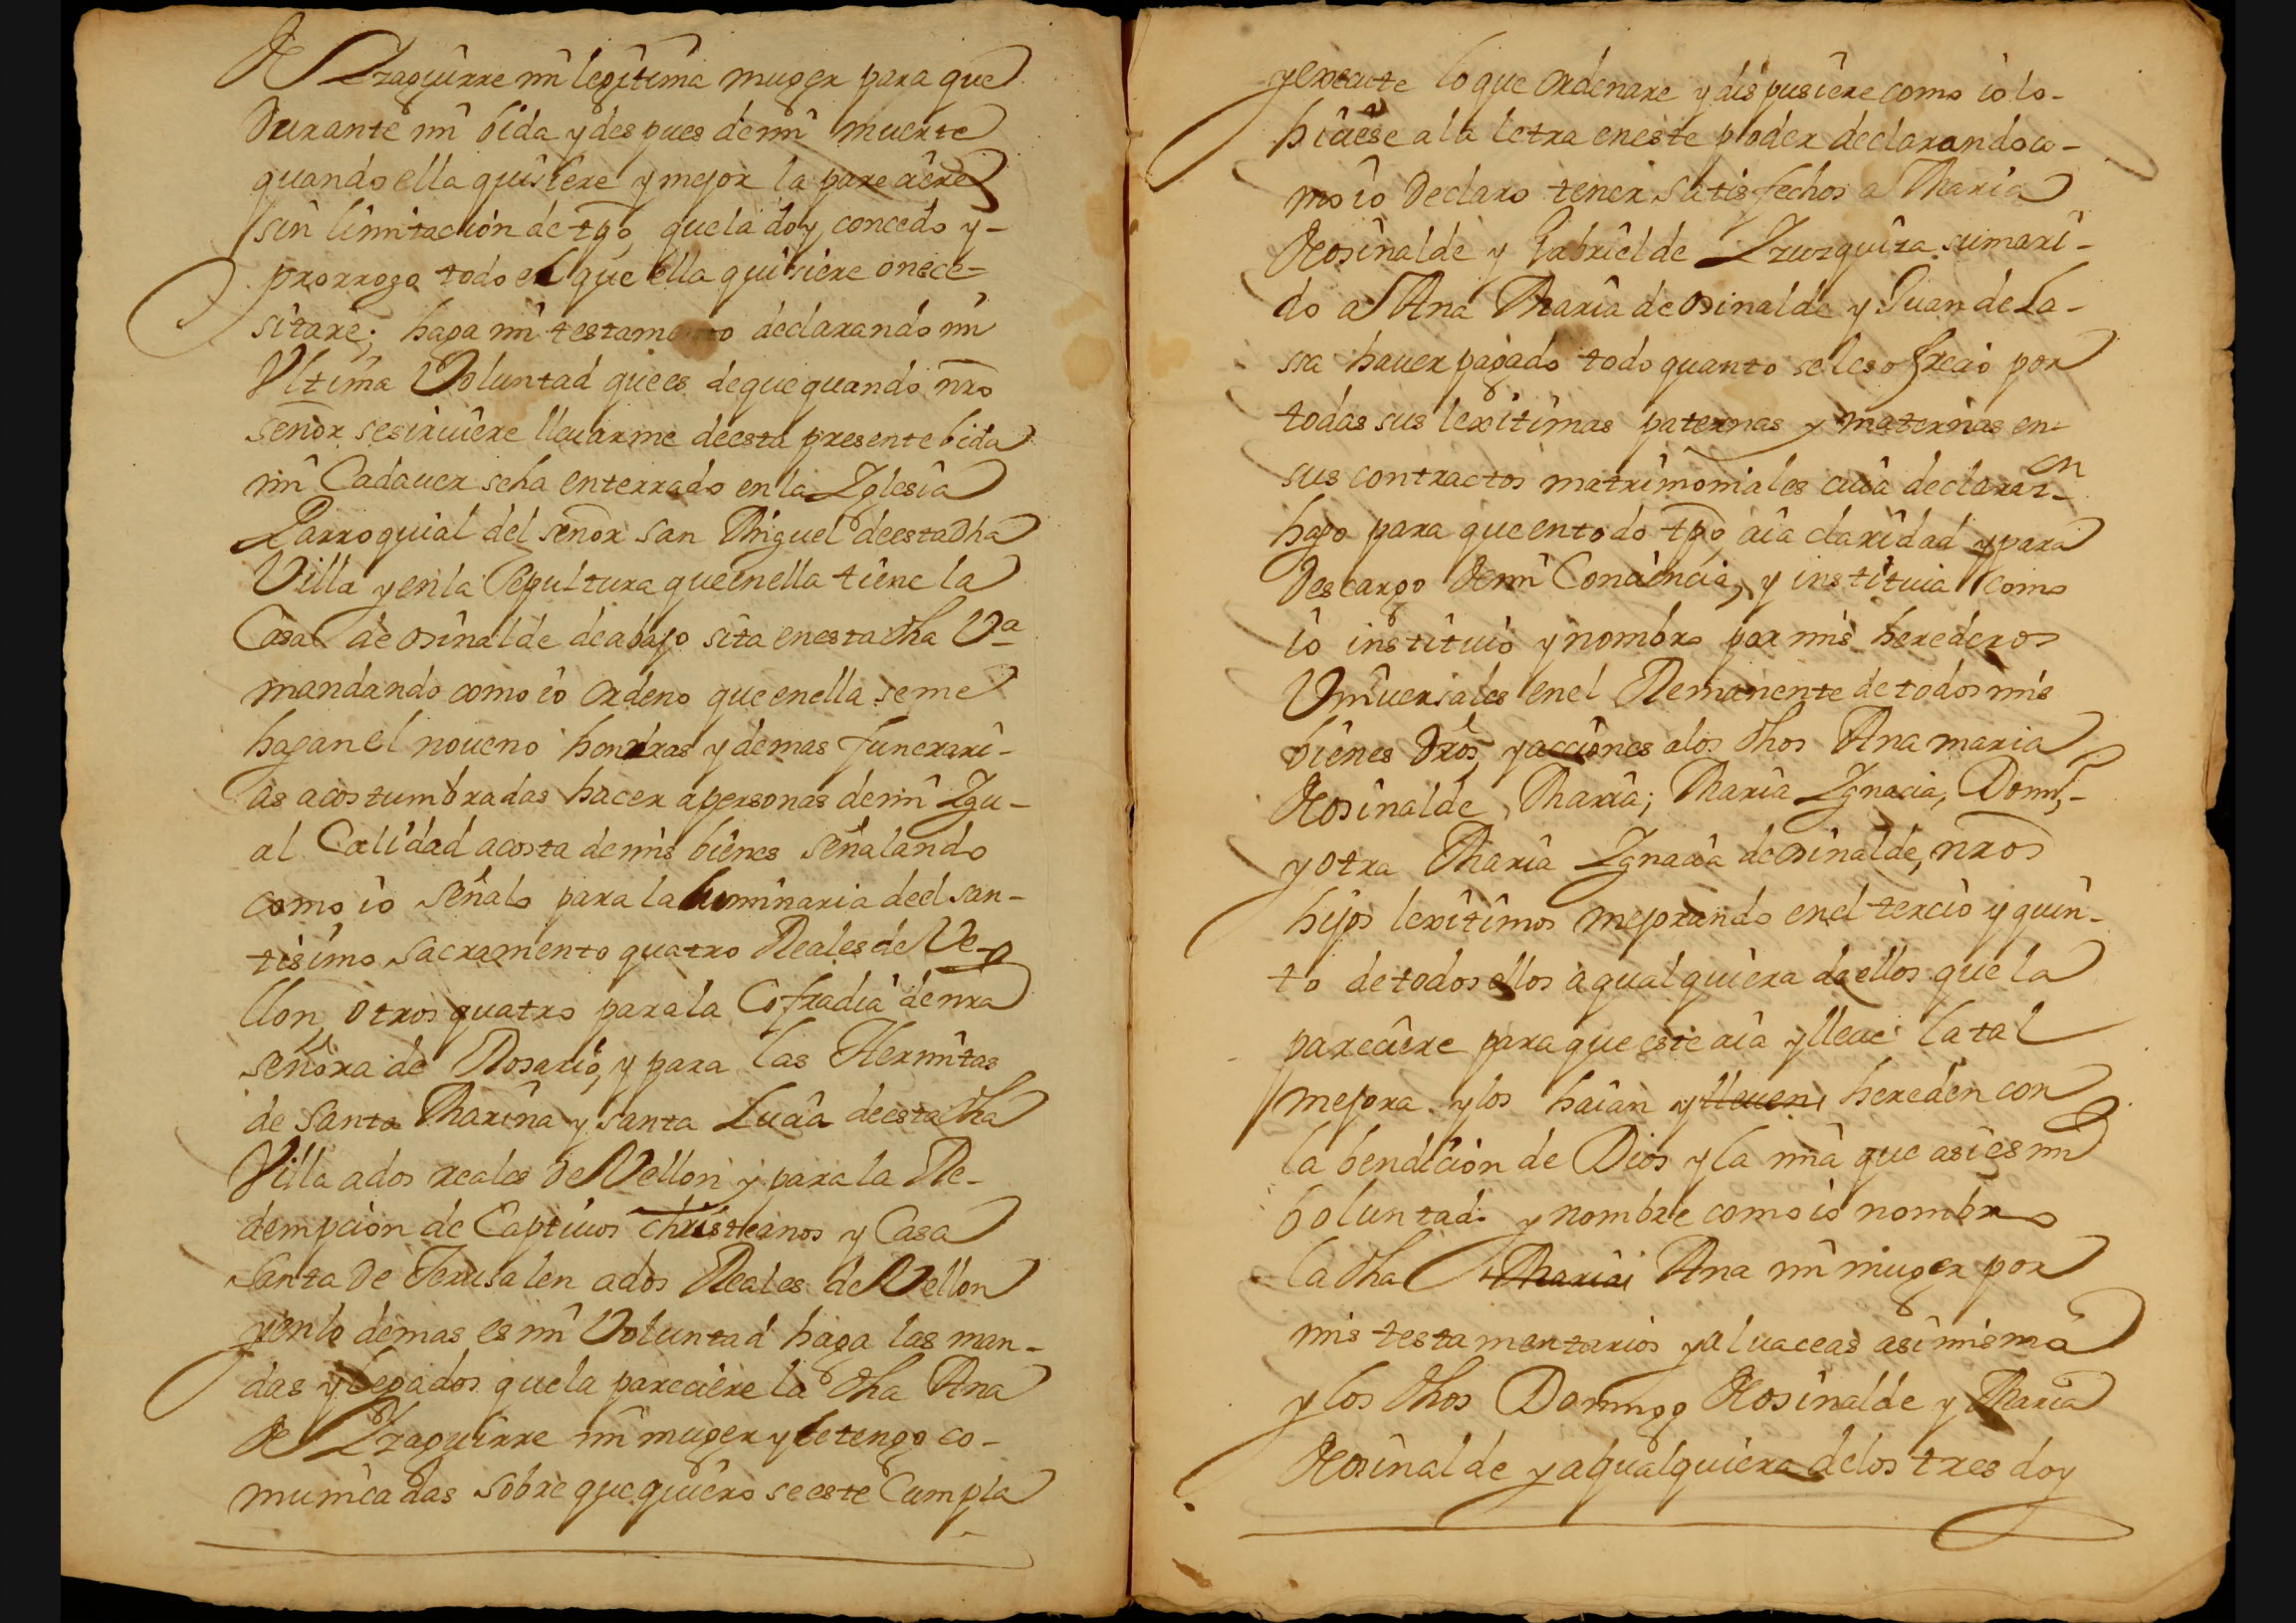 de Yzaguirre mi legitima muger para que
Durante mi bida y despues de mi muerte
quando ella quisiere y mejor la pareciere
sin limitacion de tpo, que la doy, concedo y-
prorrogo todo el que ella quisiere o nece-
sitare; haga mi testamento declarando mi
Vltima Voluntad que es de que quando nro
señor se sirviere lleuarme de esta presente bida
mi Cadauer seha enterrado en la Yglesia
Parroquial del señor san Miguel de esta dha
Villa y en la Sepultura que en ella tiene la
Casa de osinalde de abajo sita en esta dha Va
mandando como io ordeno que en ella se me
hagan el noueno honrras y demas funerari-
as acostumbradas hacer a personas de mi Ygu-
al Calidad a costa de mis bienes señalando
como io señalo para la luminaria de el san-
tisimo sacramento quatro Reales de Ve-
llon, otros quatro para la Cofradia de nra
señora de Rosario, y para las Hermitas
de Santa Marina y santa Lucia de esta dha
Villa a dos reales de Vellon y para la Re-
dempcion de Captiuos christianos y Casa
Santa de Jerusalen a dos Reales de Vellon
y en lo demas es mi Voluntad haga las man-
das y legados que la pareciere la dha Ana
de Yzaguirre mi muger y le tengo co-
municadas sobre que quiero se este Cumpla
y execute lo que ordenare y dispusiere como io lo-
hiciese a la letra en este poder declarando co-
mo io Declaro tener satisfechos a Maria
de osinalde y Gabriel de Yzuzquiza su mari-
do a Ana Maria de osinalde y Juan de La-
sa hauer pagado todo quanto se les ofrecio por
todas sus lexitimas paternas y maternas en-
sus contractos matrimoniales cuia declarazn
hago para que en todo tpo, aia claridad y para
Descargo de mi Conciencia, y instituia como
io instituio y nombro por mis herederos
Vniuersales en el Remanente de todos mis
bienes dros, y acciones a los dhos Ana maria
de osinalde, Maria; Maria Ygnacia, Domi,-
y otra Maria Ygnacia de osinalde, nros
hijos lexitimos mejorando en el tercio y quin-
to de todos ellos a qualquiera de ellos que la
pareciere para que este aia y lleue la tal
mejora y los haian y lleuen, hereden con
la bendicion de Dios y la mia que asi es mi
boluntad. y nombre como io nombro
la dha Maria Ana mi muger por
mis testamentarios y aluaceas asi misma
y los dhos Domingo de osinalde y Maria
de osinalde y a qualquiera de los tres doy